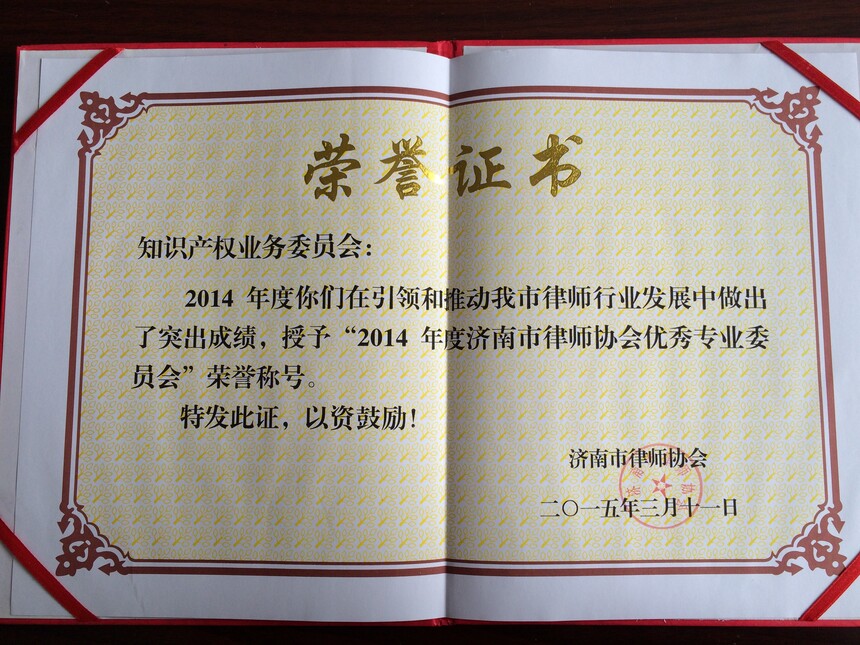 荣誉证书
知识产权业务委员会：
2014 年度你们在引领和推动我市律师行业发展中做出
了突出成绩，授予“2014 年度济南市律师协会优秀专业委
员会”荣誉称号。
特发此证，以资鼓励！
济南市律师协会
二〇一五年三月十一日